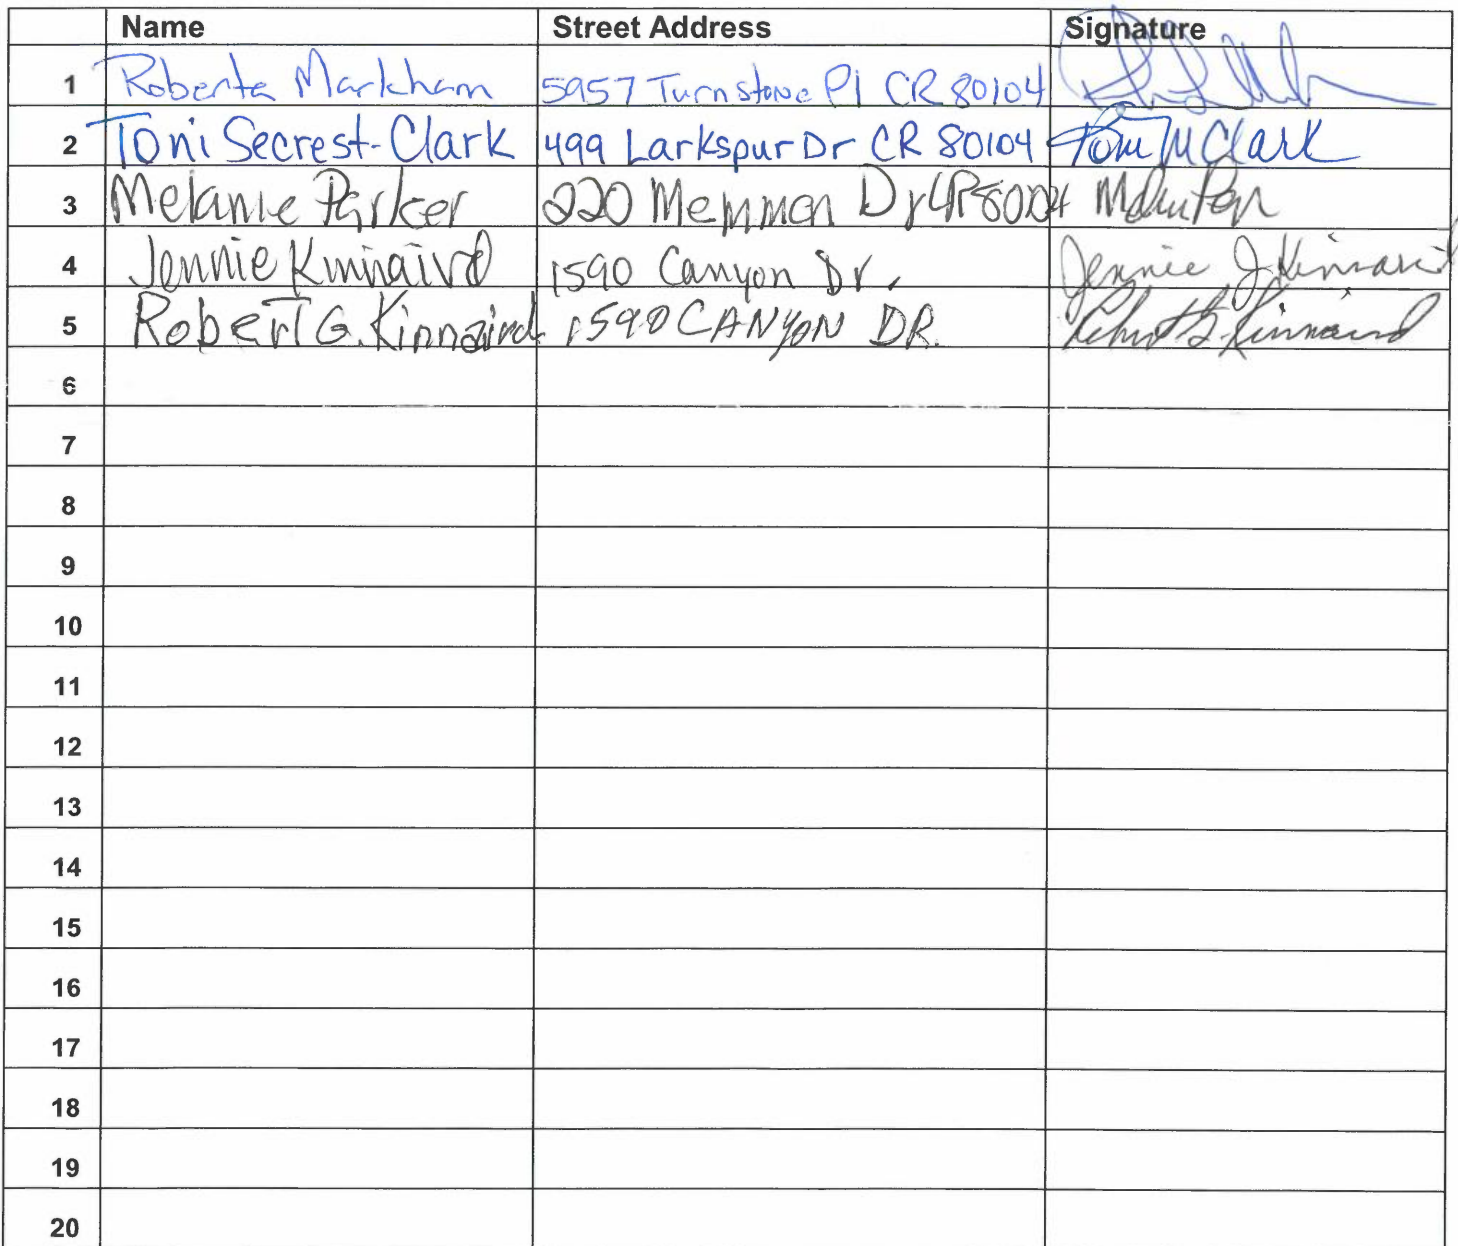 Name Street Address Signature
1 Roberta Markham 5957 Turnstone Pl CR 80104
2 Toni Secrest-Clark 499 Larkspur Dr CR 80104 Toni M Clark
3 Melanie Parker 220 Memmen Dr CR 80104
4 Jennie Kinnaird 1590 Canyon Dr. Jennie J Kinnaird
5 Robert G. Kinnaird 1590 CANYON DR. Robert G. Kinnaird
6
7
8
9
10
11
12
13
14
15
16
17
18
19
20